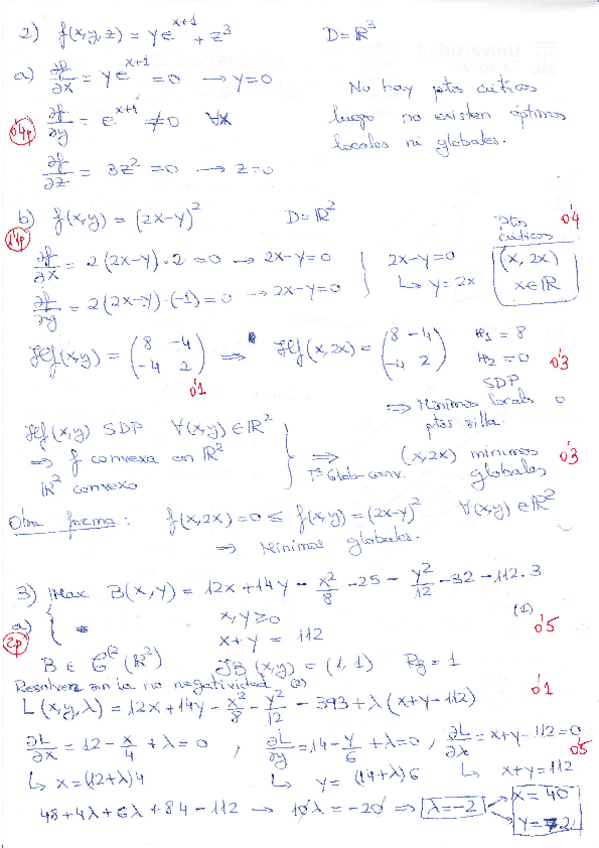 2) f(x,y,z) = y e^{x+1} + z³ D = ℝ³
a) ∂f/∂x = y e^{x+1} = 0 → y = 0
0'4p ∂f/∂y = e^{x+1} ≠ 0 ∀x
∂f/∂z = 3z² = 0 → z = 0
No hay ptos críticos
luego no existen óptimos
locales ni globales.
b) f(x,y) = (2x-y)² D = ℝ²
1'1p
∂f/∂x = 2(2x-y)·2 = 0 → 2x-y = 0
∂f/∂y = 2(2x-y)·(-1) = 0 → 2x-y = 0
2x-y = 0
↳ y = 2x
ptos críticos 0'4
(x, 2x)
x ∈ ℝ
Hf(x,y) = (8 -4 / -4 2) ⇒ Hf(x,2x) = (8 -4 / -4 2) H₁ = 8
H₂ = 0 0'3
0'1 SDP
⇒ Mínimos locales o
ptos silla.
Hf(x,y) SDP ∀(x,y) ∈ ℝ²
⇒ f convexa en ℝ²
ℝ² convexo
⇒ Tª Glob-conv. (x,2x) mínimos globales 0'3
Otra forma: f(x,2x) = 0 ≤ f(x,y) = (2x-y)² ∀(x,y) ∈ ℝ²
⇒ Mínimos globales.
3) Max B(x,y) = 12x + 14y - x²/8 - 25 - y²/12 - 32 - 112·3
a) x,y ≥ 0 (1)
2p x + y = 112 0'5
B ∈ C²(ℝ²) JB(x,y) = (1,1) Rg = 1
Resolver sin la no negatividad (2) 0'1
L(x,y,λ) = 12x + 14y - x²/8 - y²/12 - 393 + λ(x+y-112)
∂L/∂x = 12 - x/4 + λ = 0 , ∂L/∂y = 14 - y/6 + λ = 0 , ∂L/∂λ = x+y-112 = 0
0'5
↳ x = (12+λ)4 ↳ y = (14+λ)6 ↳ x+y = 112
48 + 4λ + 6λ + 84 - 112 → 10λ = -20 ⇒ λ = -2
x = 40
y = 72